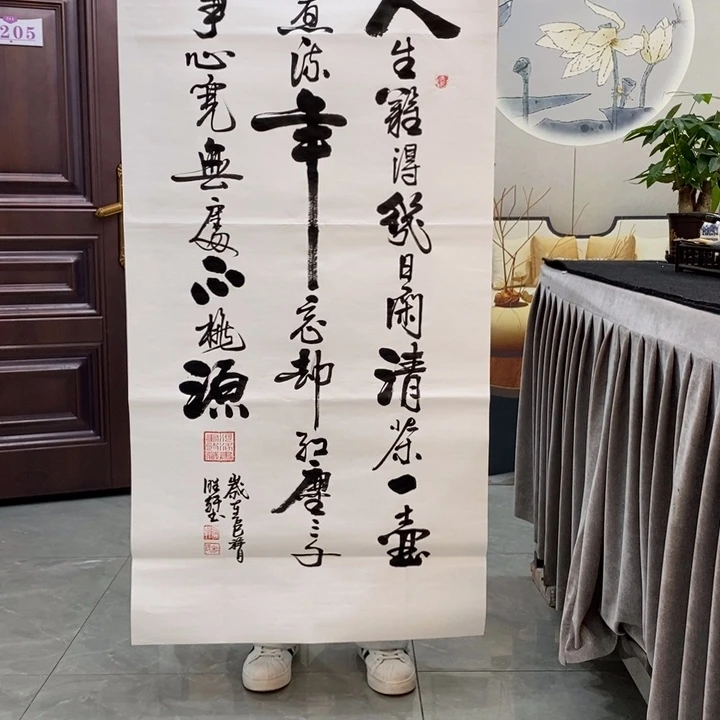 人生難得幾日閑清茶一壺
煮流年忘却紅塵三千
事心寬無處不桃源
歲在乙巳
205